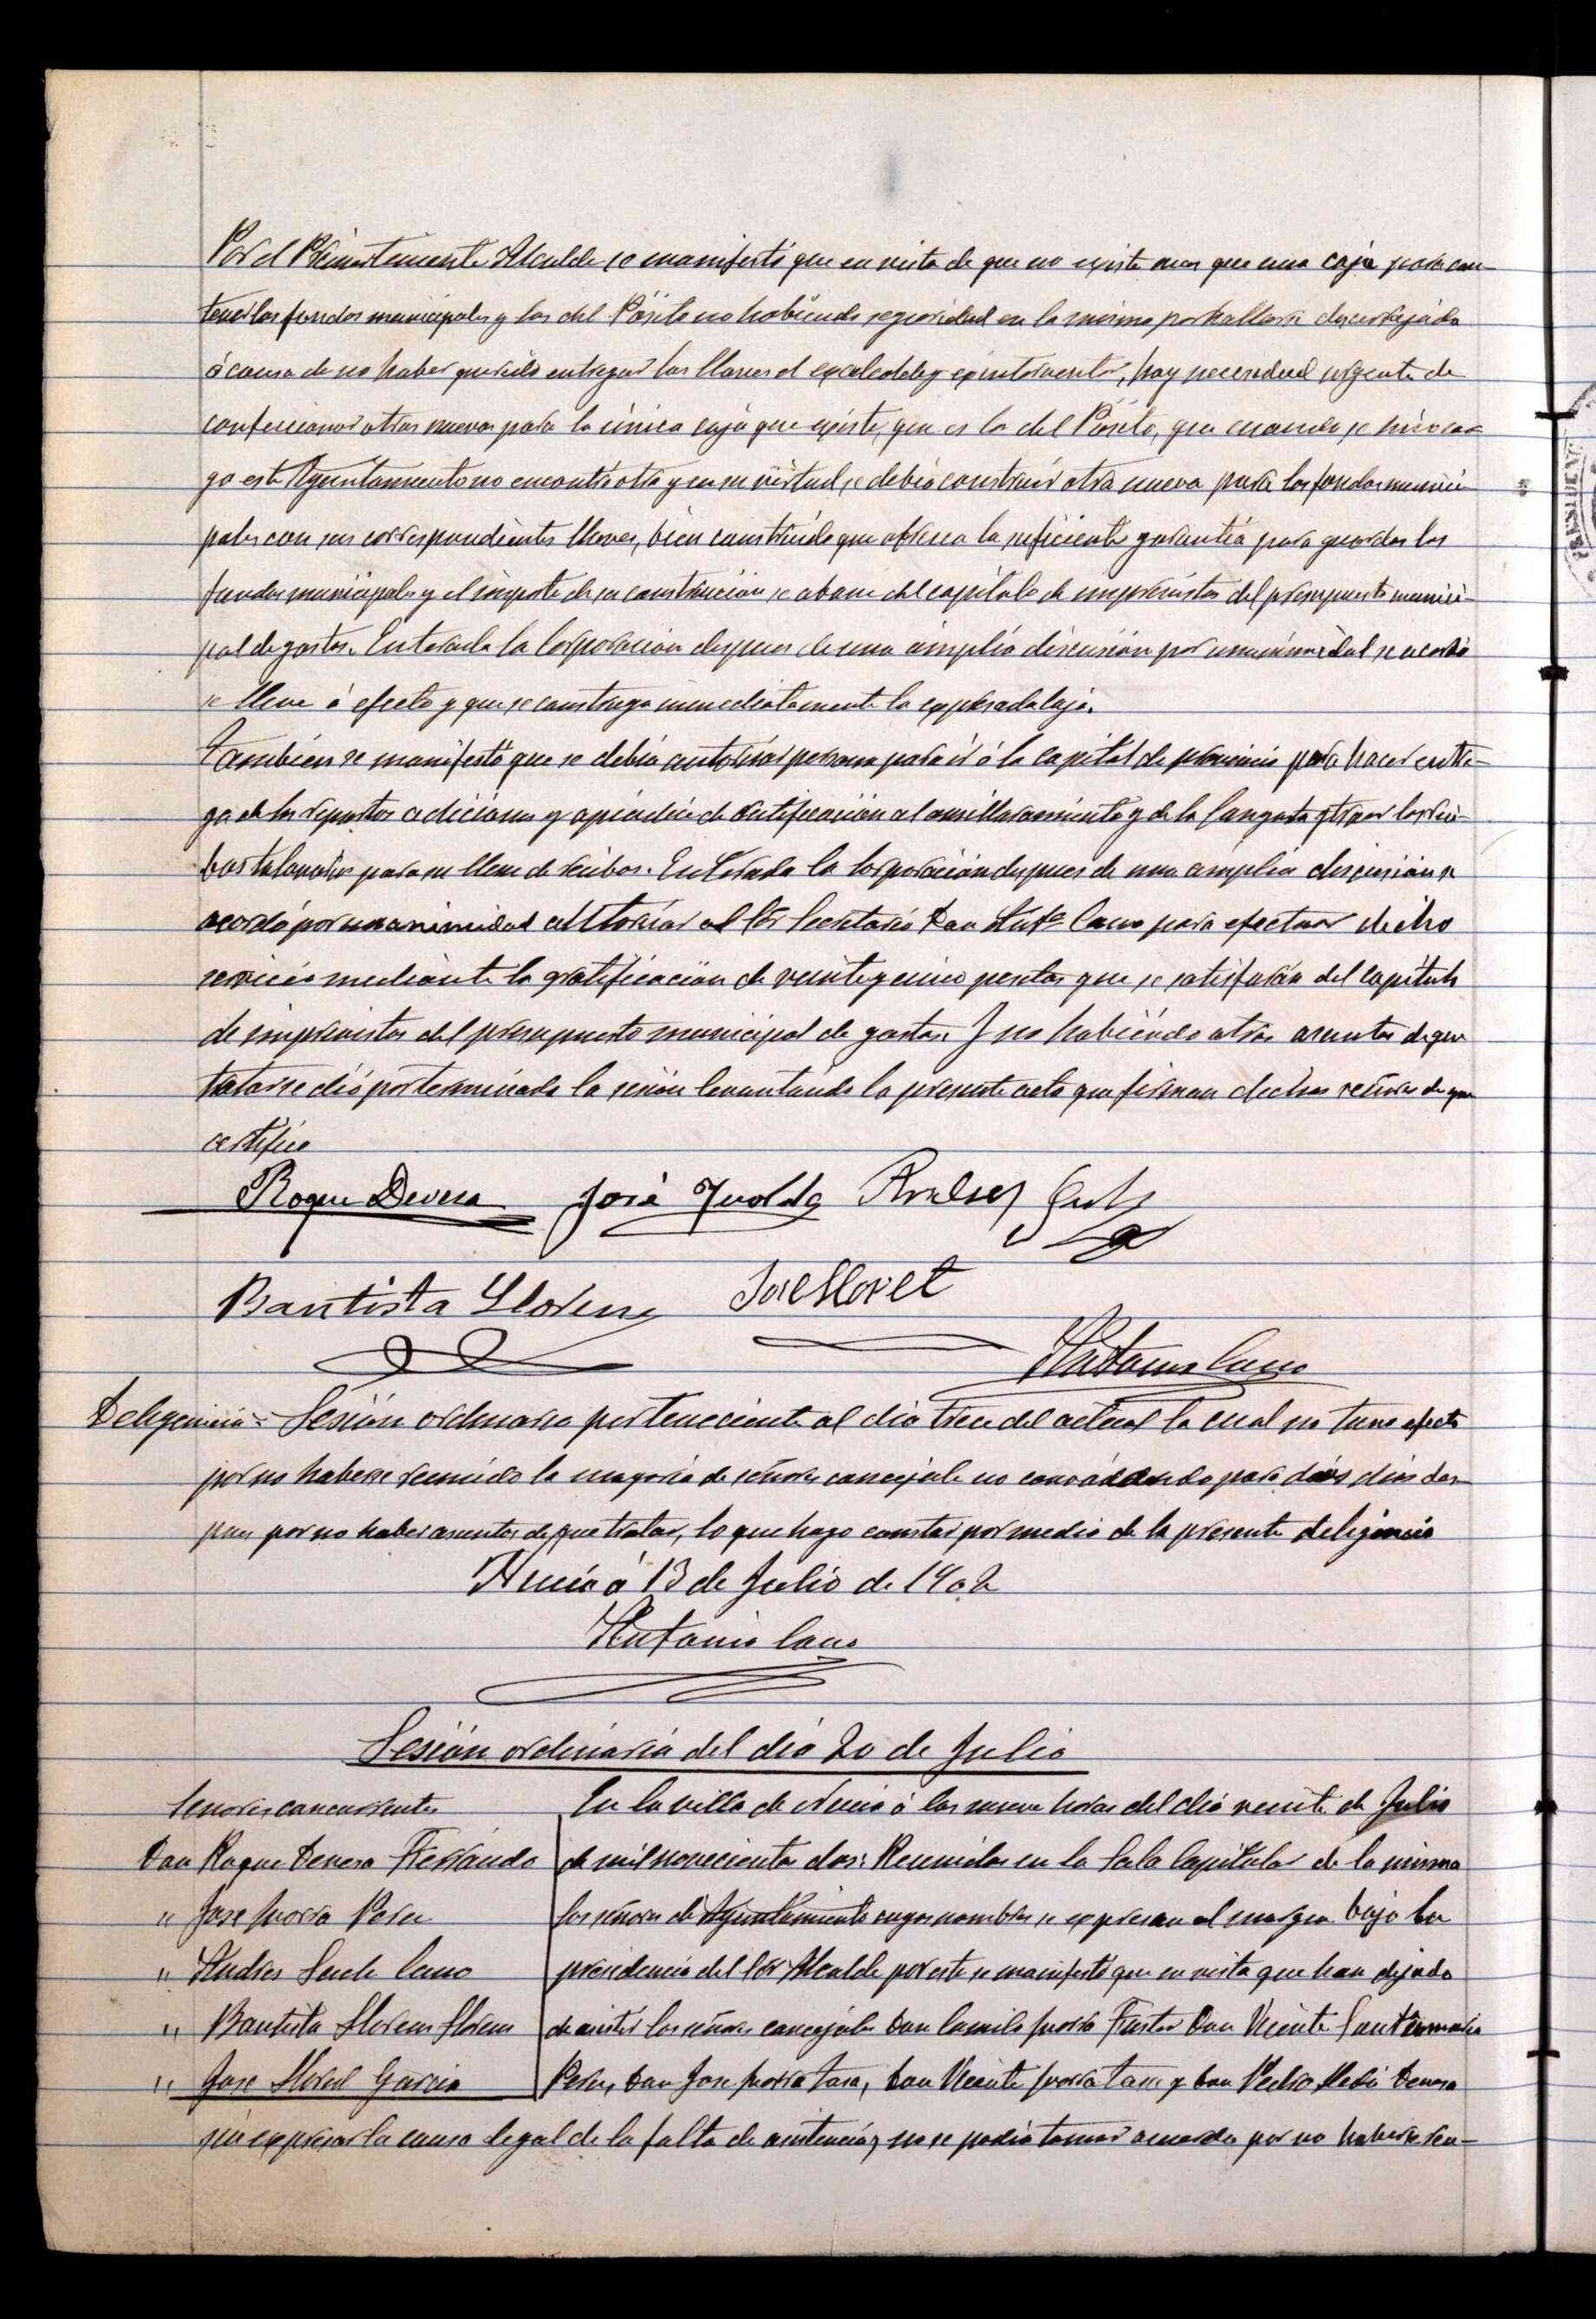 Por el Primer teniente Alcalde se manifestó que en vista de que no existe mas que una caja para con-
tener los fondos municipales y los del Pósito no habiendo seguridad en la misma por hallarse descerrajada
á causa de no haber querido entregar las llaves el exalcalde y exinterventor, hay necesidad urgente de
confeccionar otras nuevas para la única caja que existe, que es la del Pósito, que cuando se hizo car-
go este Ayuntamiento no encontró otra y en su virtud se debia construir otra nueva para los fondos munici
pales con sus correspondientes llaves, bien construida que ofrezca la suficiente garantía para guardar los
fondos municipales y el importe de su construcción se abone del capítulo de imprevistos del presupuesto munici-
pal de gastos. Enterada la Corporación despues de una amplia discusión por unanimidad se acordó
se lleve á efecto y que se construya inmediatamente la expresada caja.
Tambien se manifestó que se debia autorizar persona para ir á la capital de provincia para hacer entre-
ga de los repartos adicionar y apéndice de rectificación al amillaramiento y de la langosta por los reci-
bos talonarios para su llene de recibos. Enterada la Corporación despues de una amplia discusión se
acordó por unanimidad autorizar al Sr Secretario Don Antº Cano para efectuar dicho
servicio mediante la gratificación de veinte y cinco pesetas que se satisfarán del capítulo
de imprevistos del presupuesto municipal de gastos. Y no habiendo otros asuntos de que
tratar se dió por terminada la sesión levantando la presente acta que firman dichos señores de que
certifico
Roque Devesa José Andrés
Bautista Llorens José Lloret
Antonio Cano
Deligencia = Sesión ordinaria perteneciente al dia trece del actual la cual no tuvo efecto
por no haberse reunido la mayoria de señores concejale no convocando para dos dias des-
pues por no haber asuntos de que tratar, lo que hago constar por medio de la presente deligencia
Nucia á 13 de Julio de 1902
Antonio Cano
Sesión ordinaria del dia 20 de Julio
Señores concurrentes
Don Roque Devesa Ferrando
" Jose Ivorra Perez
" Andres Cano
" Bautista Llorens Llorens
" Jose Lloret Garcia
En la villa de Nucia á las nueve horas del dia veinte de Julio
de mil novecientos dos: Reunidos en la Sala Capitular de la misma
los señores de Ayuntamiento cuyos nombres se expresan al margen bajo la
presidencia del Sr Alcalde por este se manifestó que en vista que han dejado
de asistir los señores concejales Don Camilo Ivorra Don Vicente Santamaria
Perez, Don Jose Ivorra, Don Vicente Ivorra y Don Pedro Devesa
sin expresar la causa legal de la falta de asistencia, no se podia tomar acuerdo por no haberse reu-